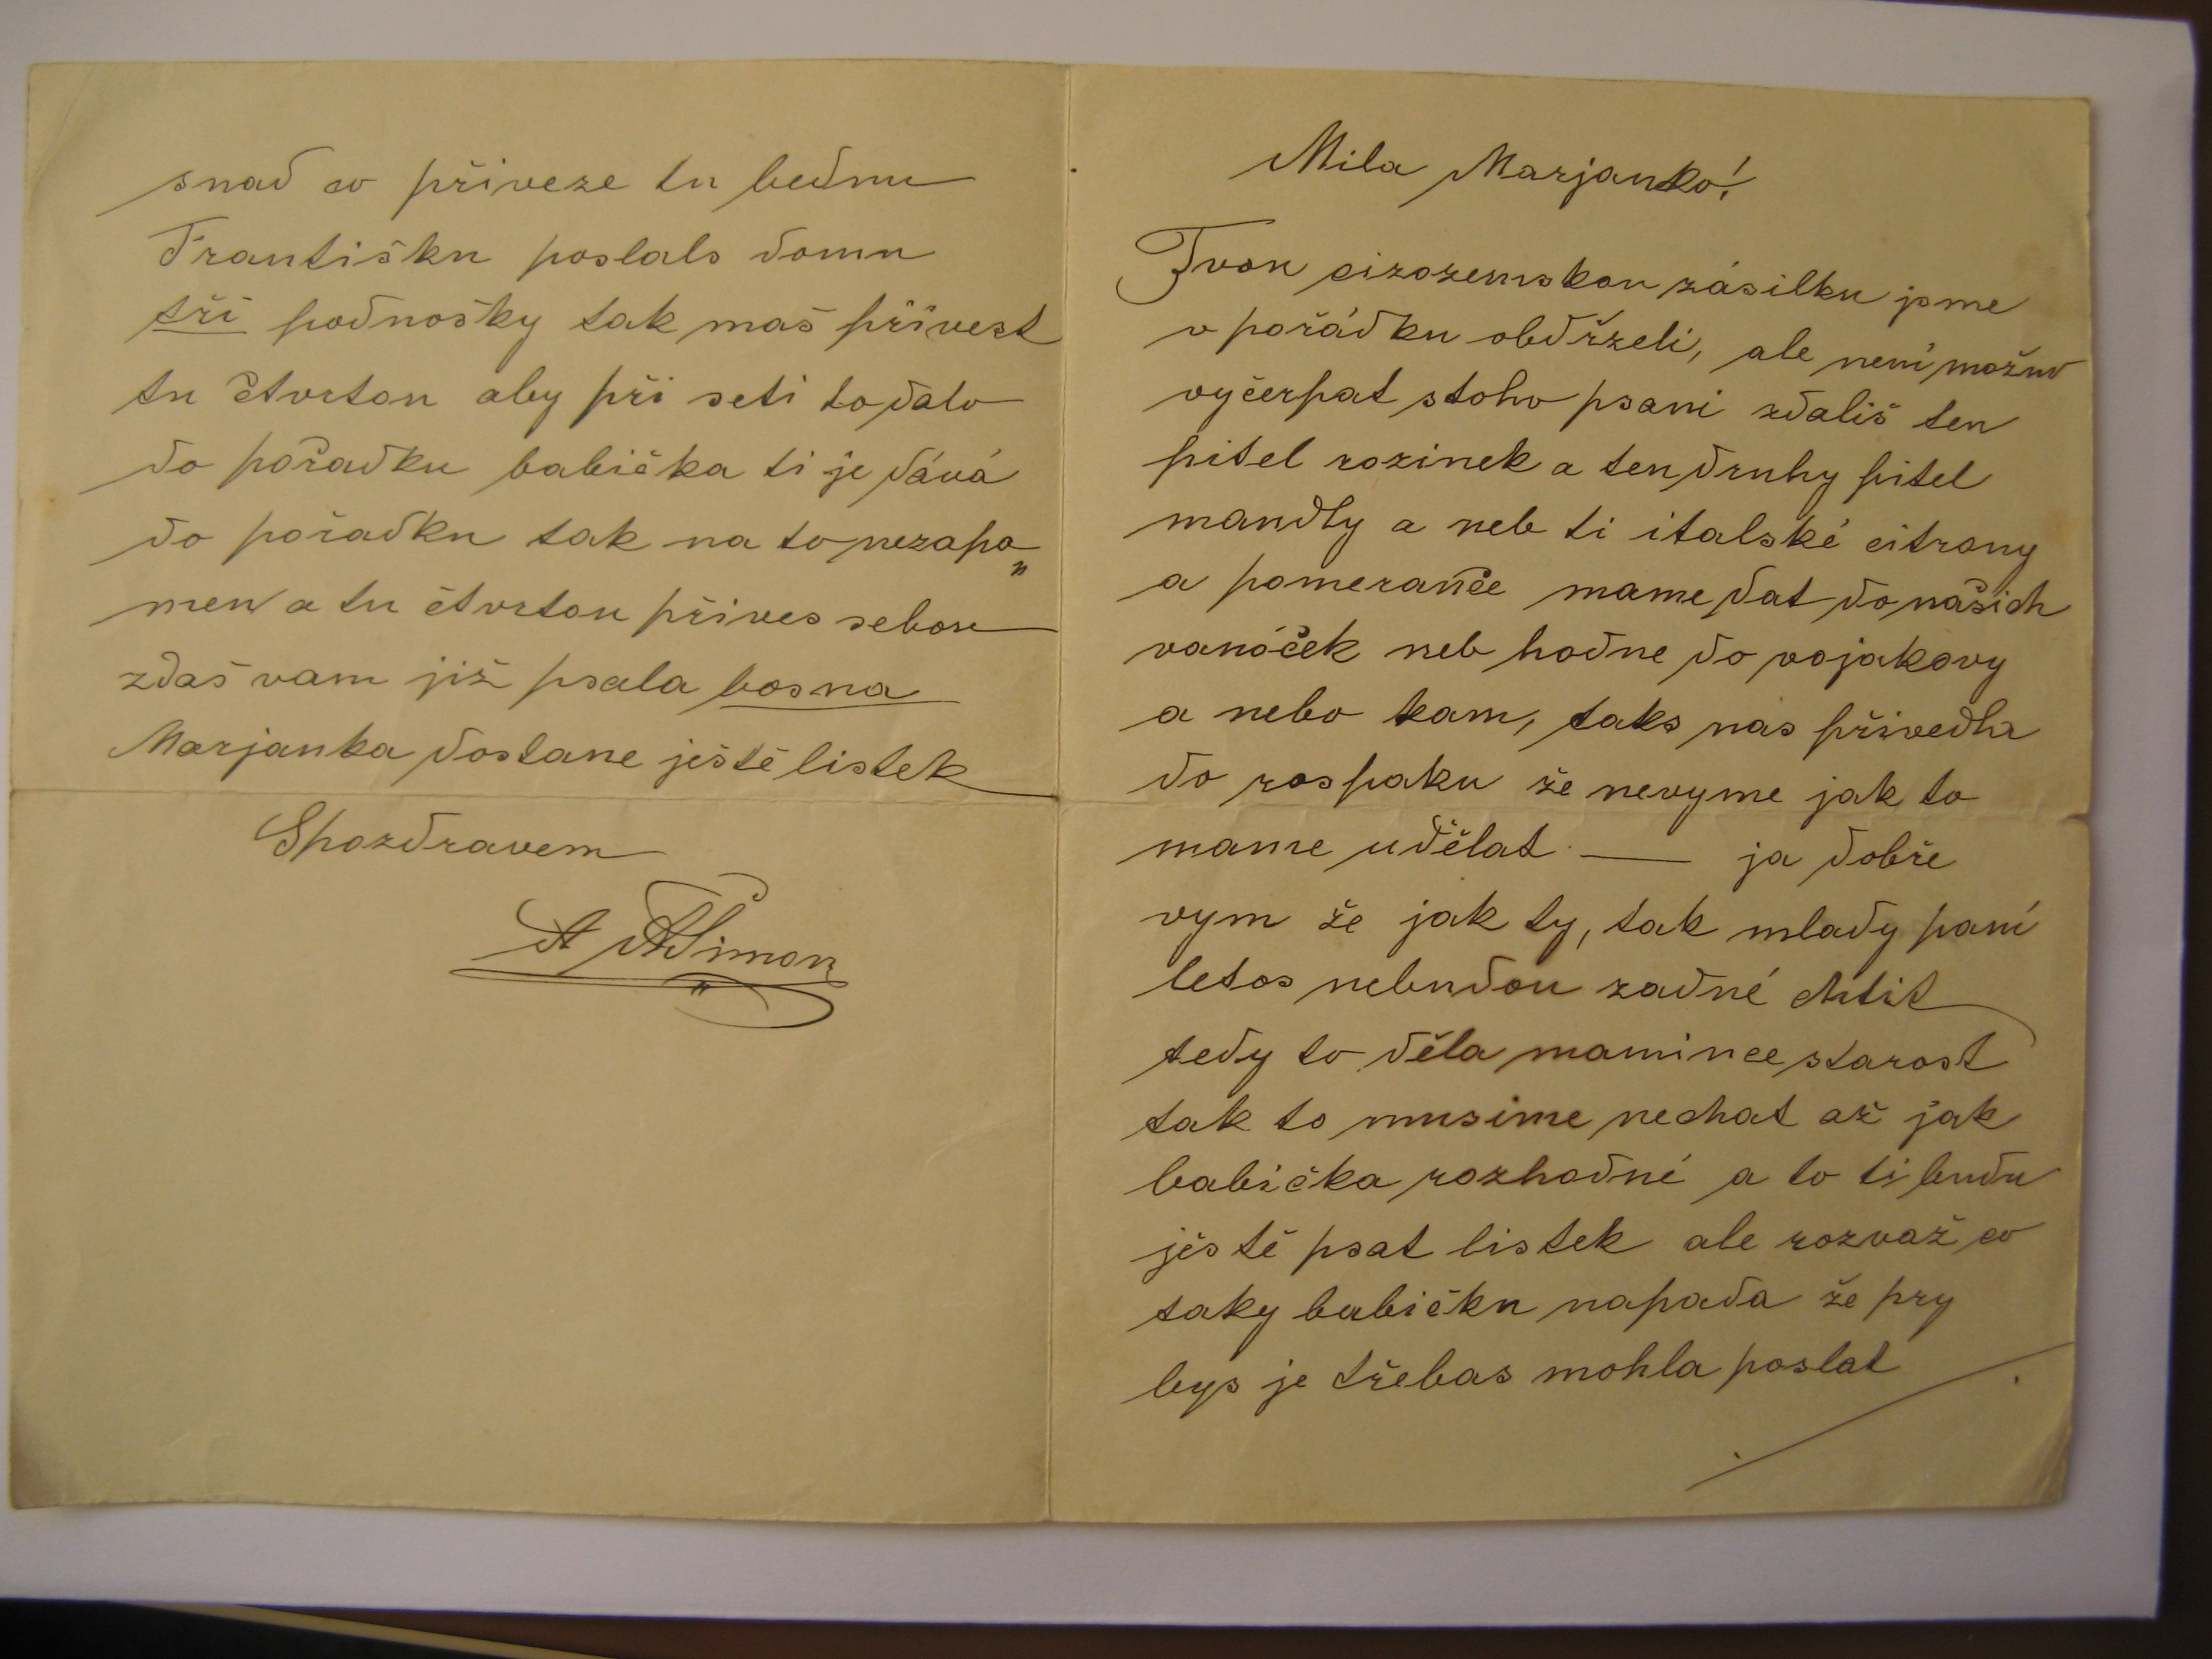 Mila Marjanko!
Tvou cizozemskou zásilku jsme
v pořádku obdrželi, ale není možno
vyčerpat stoho psani zdališ ten
pitel rozinek a ten druhy pitel
mandly a neb ti italské citrony
a pomeranče mame dat do našich
vanoček neb hodne do vojakovy
a nebo kam, taks nas přivedla
do rospaku že nevyme jak to
mame udělat — ja dobře
vym že jak ty, tak mlady paní
letos nebudou zadné chtit
tedy to děla mamince starost
tak to musime nechat až jak
babička rozhodné a to ti budu
ještě psat listek ale rozvaž co
taky babičku napada že pry
bys je třebas mohla poslat
snad co přiveze tu bednu
Františku poslals domu
tři podnošky tak maš přivest
tu čtvrtou aby při seti to dalo
do pořadku babička ti je dává
do pořadku tak na to nezapo„
men a tu čtvrtou přives sebou
zdaš vam již psala bosna
Marjanka dostane ještě listek
Spozdravem
A Šimon